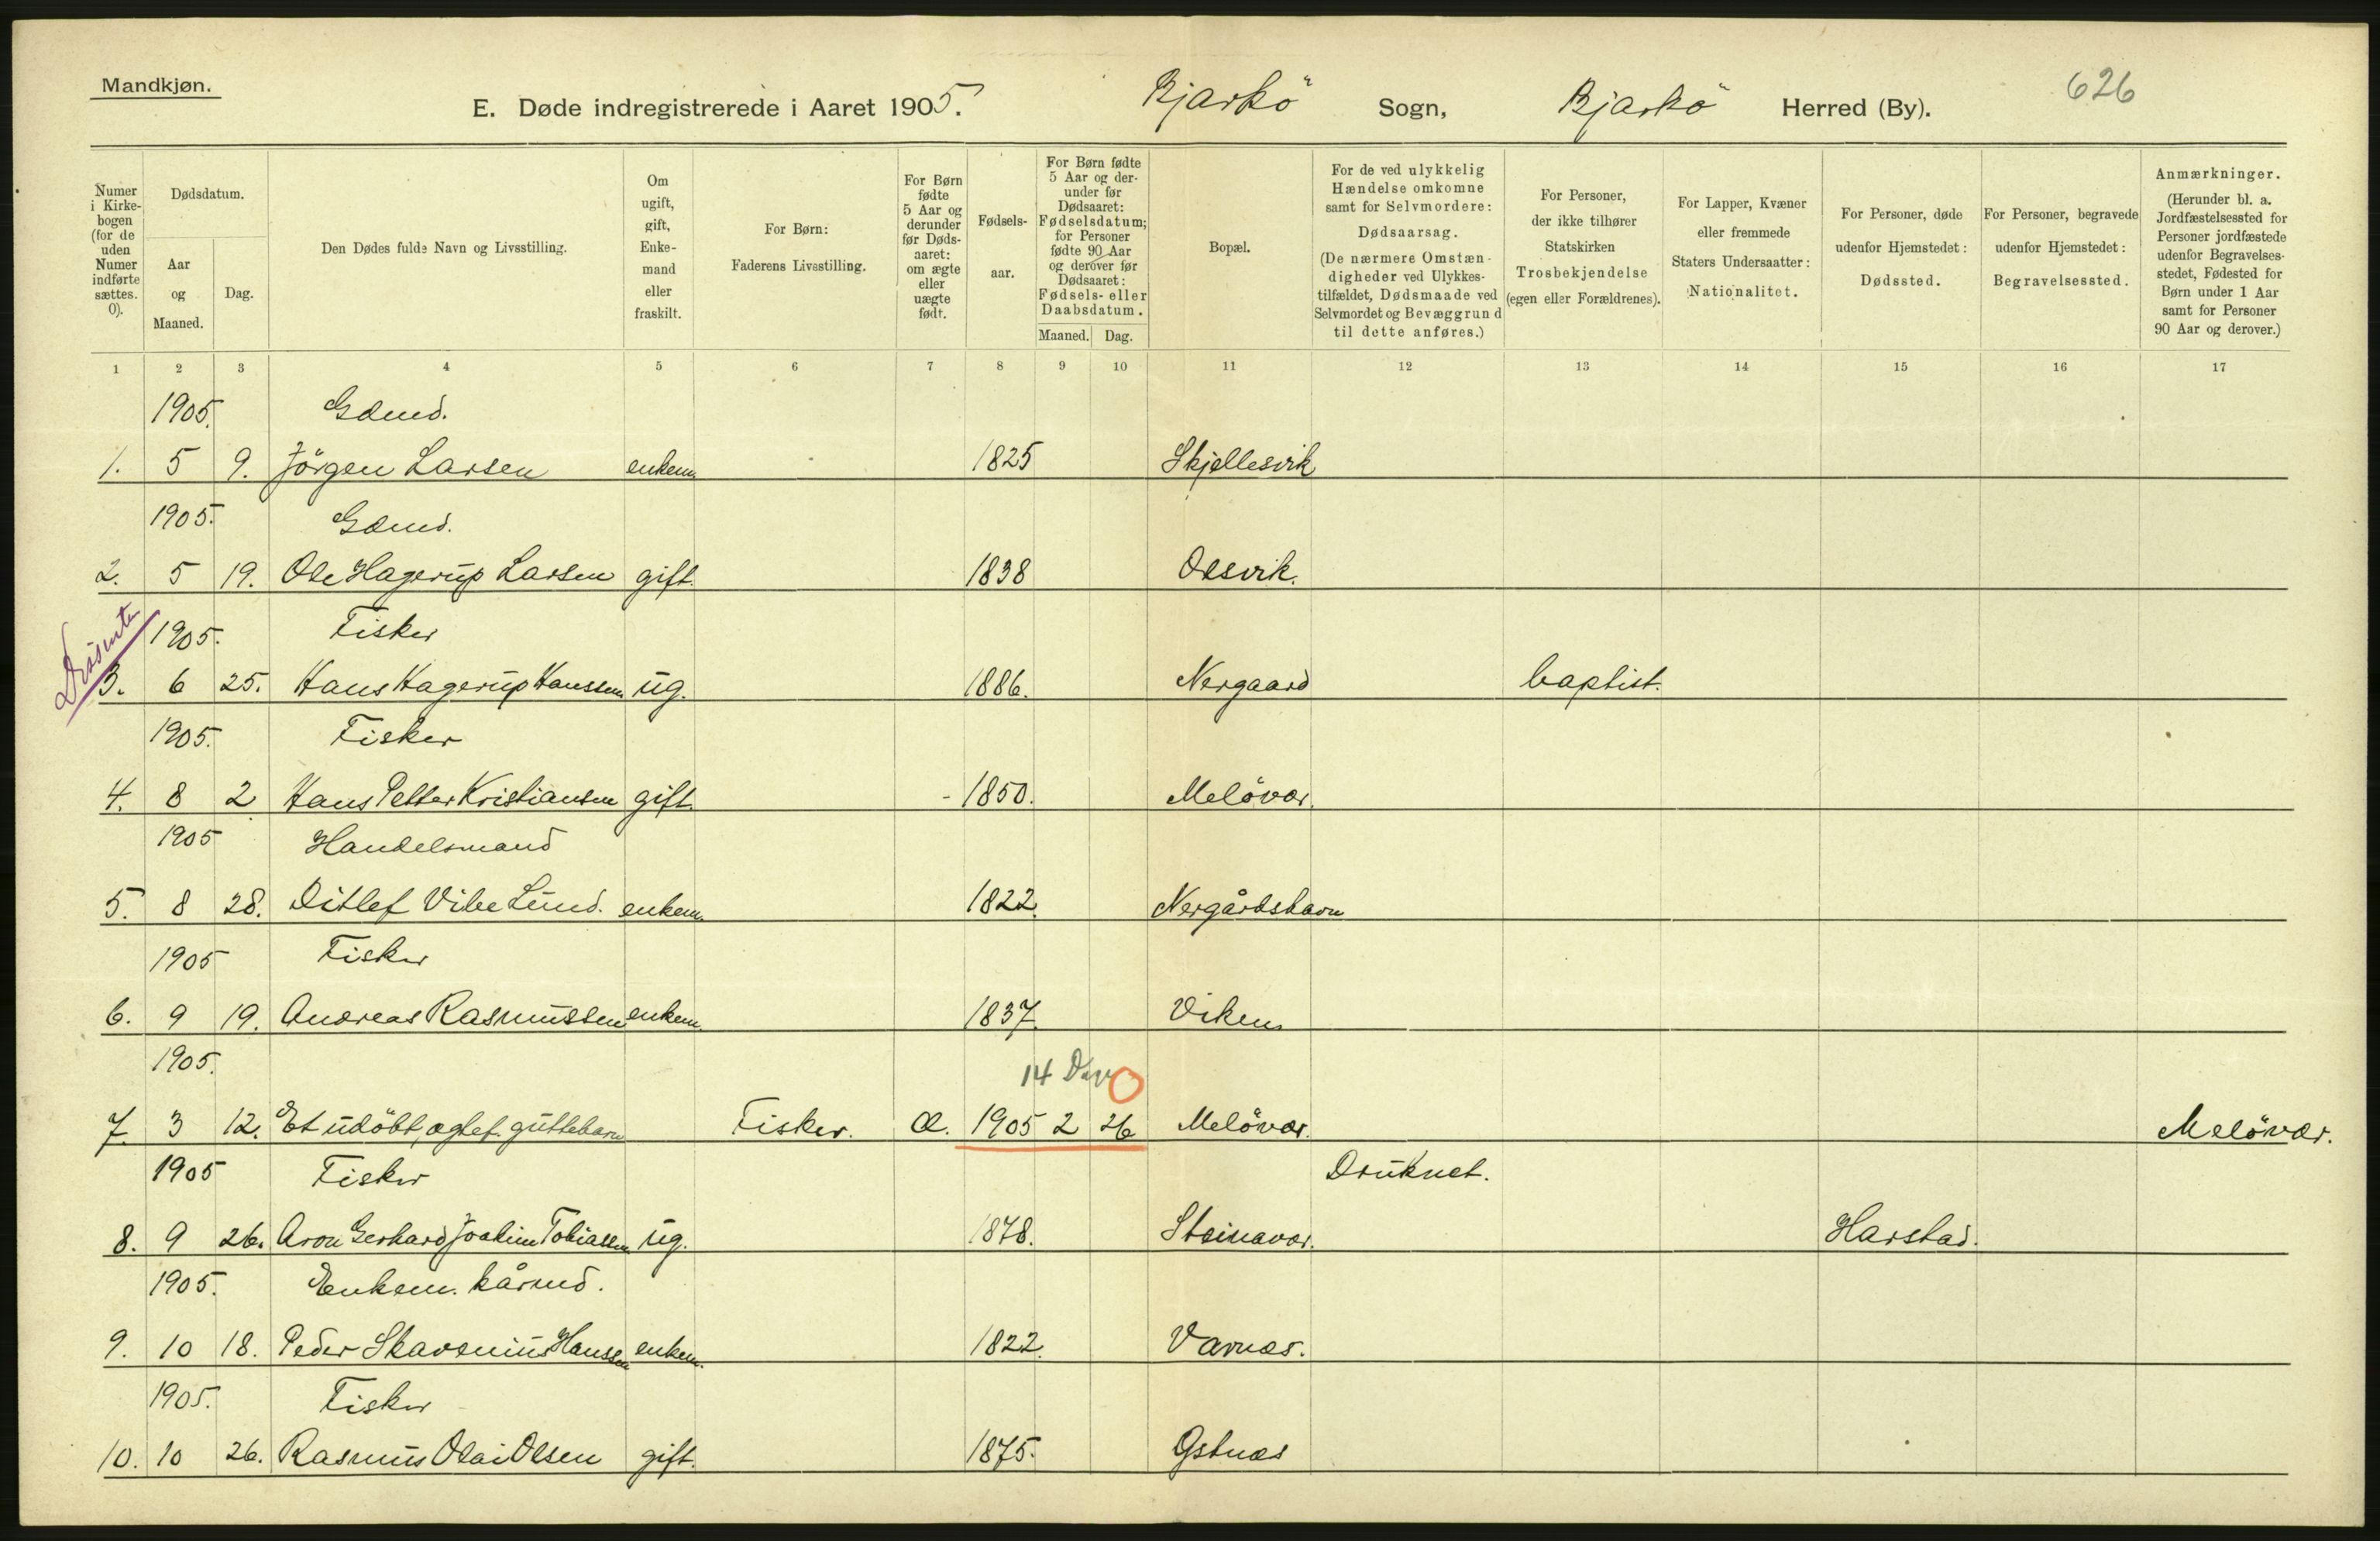 Mandkjøn.
E. Døde indregistrerede i Aaret 1905. Bjarkö Sogn, Bjarkö Herred (By). 626
Numer i Kirkebogen (for de uden Numer indførte sættes. 0).
Dødsdatum.
Aar og Maaned.
Dag.
Den Dødes fulde Navn og Livsstilling.
Om ugift, gift, Enkemand eller fraskilt.
For Børn: Faderens Livsstilling.
For Børn fødte 5 Aar og derunder før Dødsaaret: om ægte eller uægte født.
Fødselsaar.
For Børn fødte 5 Aar og derunder før Dødsaaret: Fødselsdatum; for Personer fødte 90 Aar og derover før Dødsaaret: Fødsels- eller Daabsdatum.
Maaned. Dag.
Bopæl.
For de ved ulykkelig Hændelse omkomne samt for Selvmordere: Dødsaarsag. (De nærmere Omstændigheder ved Ulykkestilfældet, Dødsmaade ved Selvmordet og Bevæggrund til dette anføres.)
For Personer, der ikke tilhører Statskirken Trosbekjendelse (egen eller Forældrenes).
For Lapper, Kvæner eller fremmede Staters Undersaatter: Nationalitet.
For Personer, døde udenfor Hjemstedet: Dødssted.
For Personer, begravede udenfor Hjemstedet: Begravelsessted.
Anmærkninger. (Herunder bl. a. Jordfæstelsessted for Personer jordfæstede udenfor Begravelsesstedet, Fødested for Børn under 1 Aar samt for Personer 90 Aar og derover.)
1 2 3 4 5 6 7 8 9 10 11 12 13 14 15 16 17
1905. Gdmd.
1. 5 9. Jörgen Larsen enkem. 1825 Skjellesvik
1905. Gdmd.
2. 5 19. Ole Hagerup Larsen gift. 1838 Olsvik.
Disenter
1905. Fisker
3. 6 25. Hans Hagerup Hanssen ug. 1886. Nergaard baptist.
1905. Fisker
4. 8 2 Hans Petter Kristiansen gift. - 1850. Melövær.
1905 Handelsmand
5. 8 28. Ditlef Vibe Lund. enkem. 1822. Nergårdshavn
1905 Fisker
6. 9 19. Andreas Rasmussen enkem. 1837. Viken
1905. 14 Dav
7. 3 12. Et udöbt, ægtef. guttebarn Fisker. Æ. 1905 2 26 Melövær. Melövær.
1905 Fisker Druknet.
8. 9 26. Aron Gerhard Joakim Tobiassen ug. 1878. Steinavær. Harstad.
1905. Enkem. kårmd.
9. 10 18. Peder Skavenius Hanssen enkem. 1822. Valnæs.
1905. Fisker
10. 10 26. Rasmus Olai Olsen gift. 1875. Östnæs